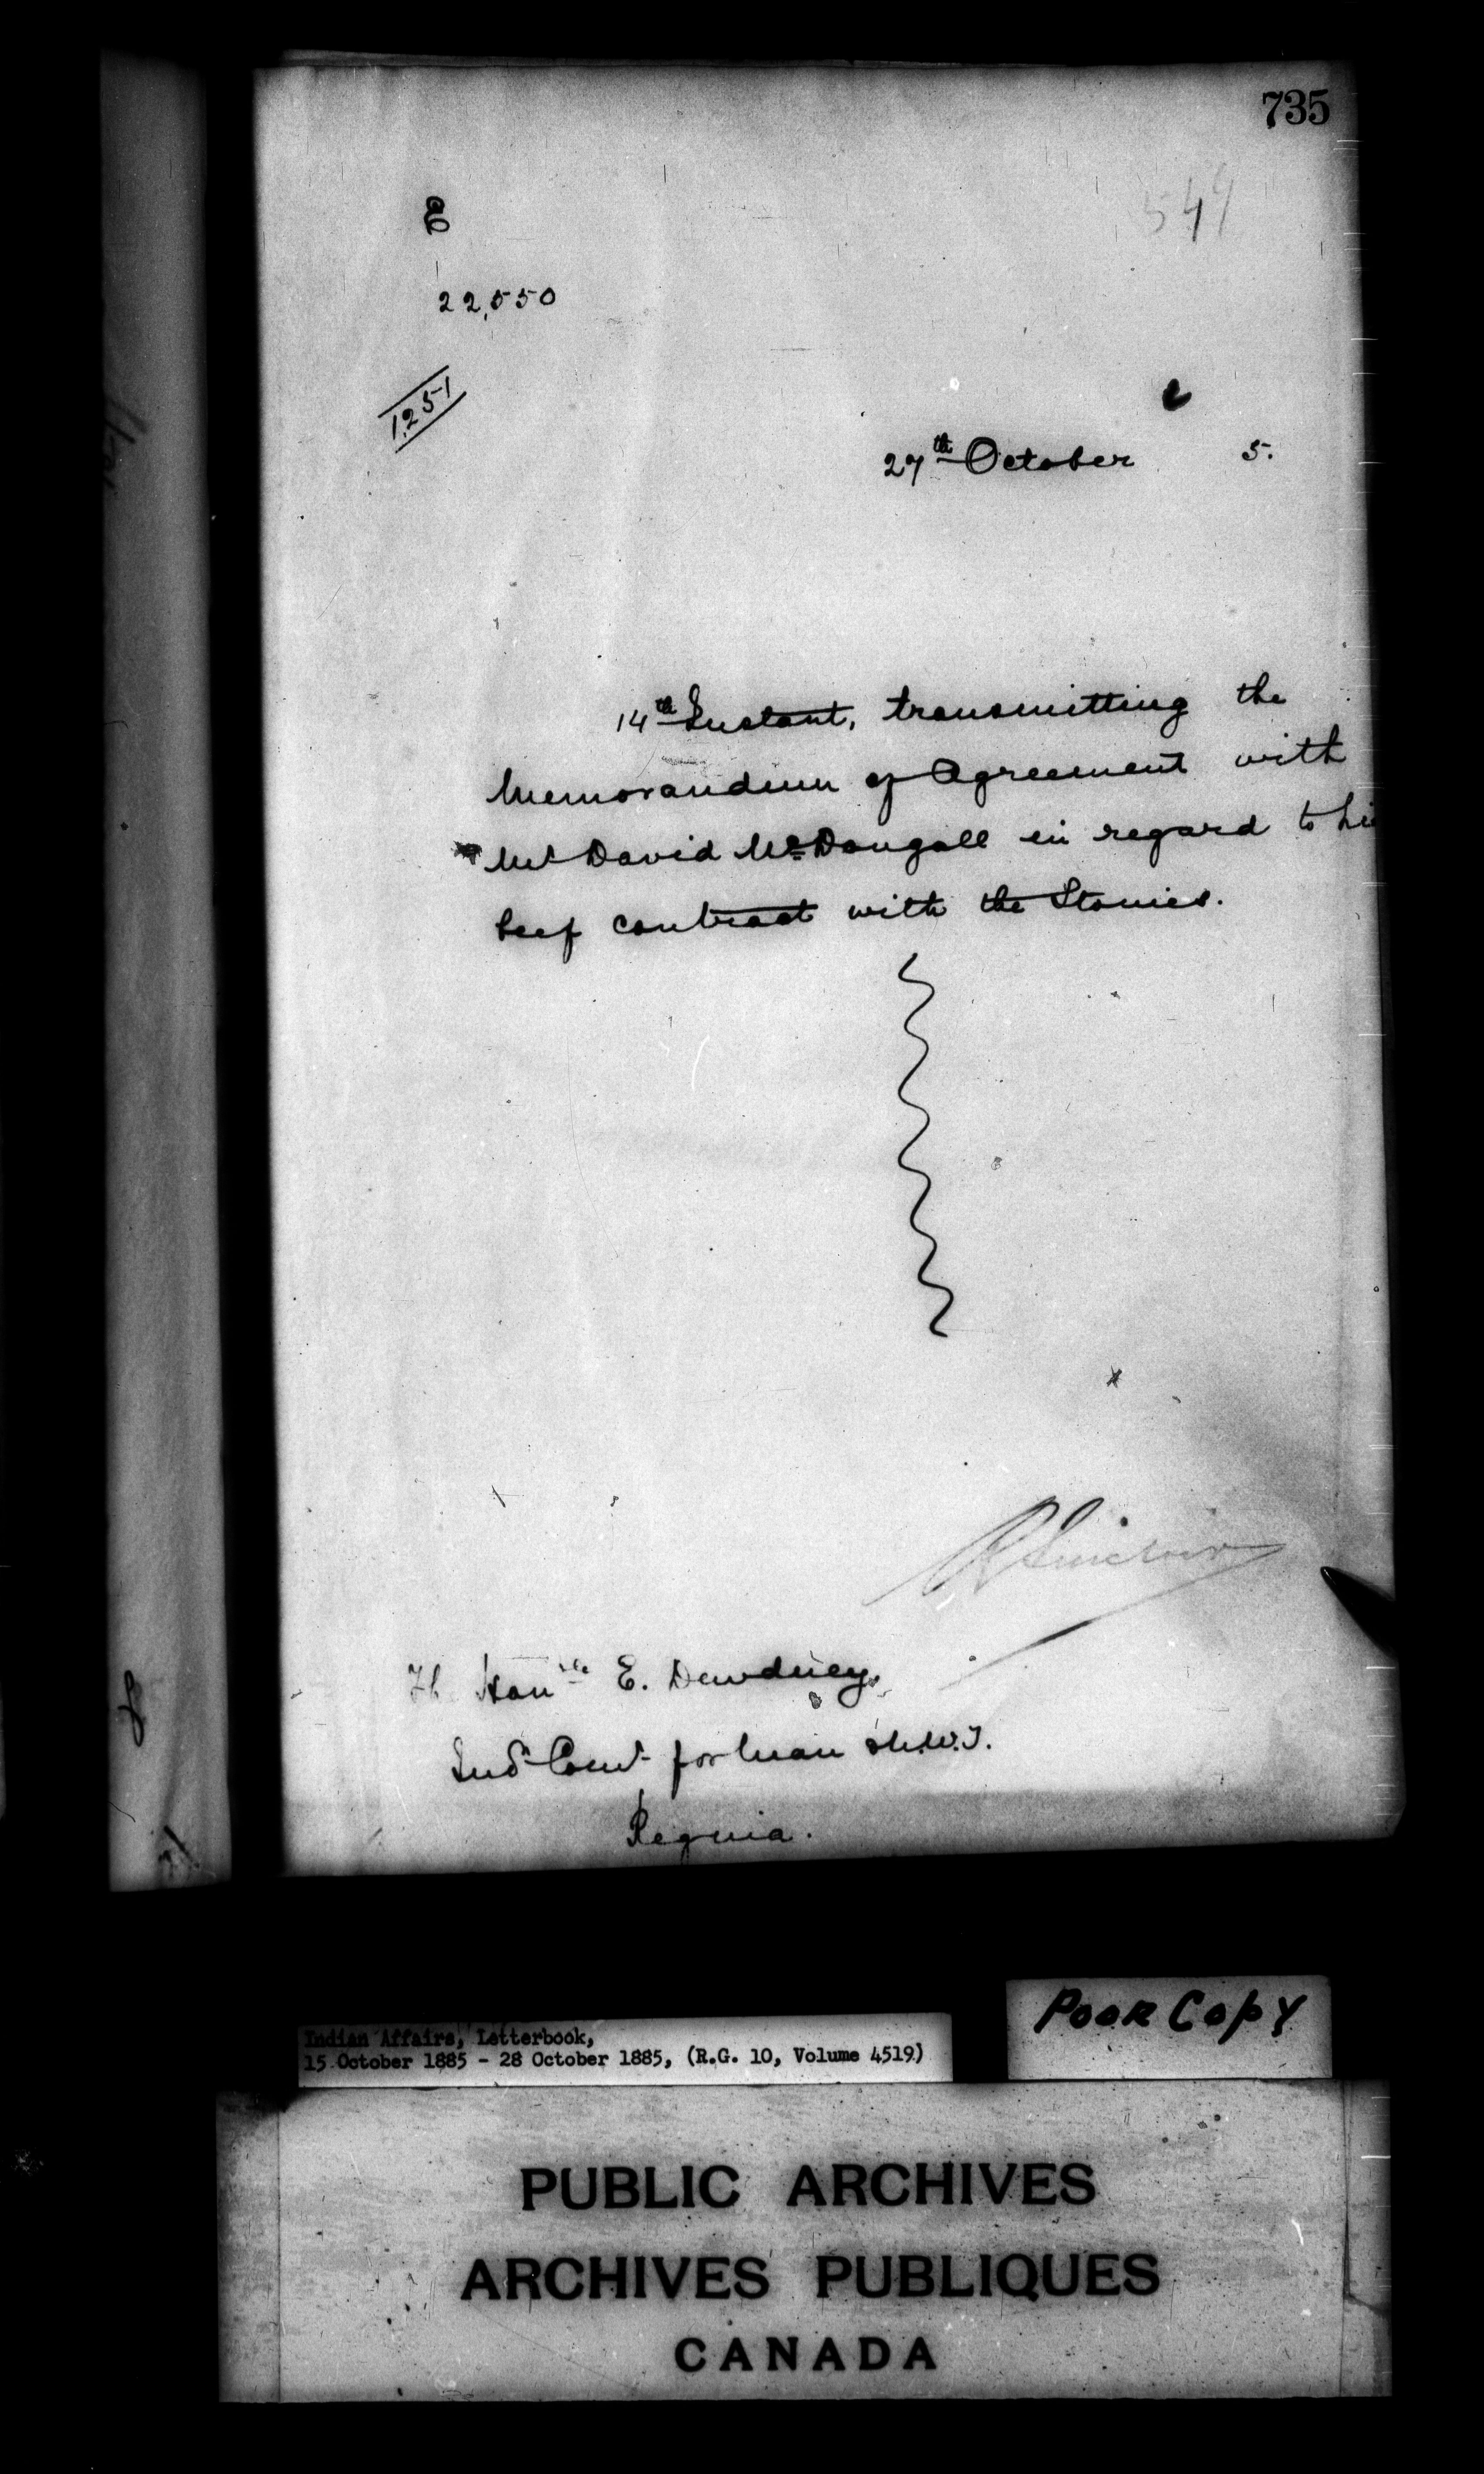 735
549
E
22,550
1251
27th October 5.
14th Instant, transmitting the
Memorandum of Agreement with
Mr David McDougall in regard to hi
beef contract with the Stonies.
R Sinclair
Honble E. Dewdney,
Ind Comr for Man & N.W.T.
Regina.
Poor Copy
Indian Affairs, Letterbook,
15 October 1885 - 28 October 1885, (R.G. 10, Volume 4519)
PUBLIC ARCHIVES
ARCHIVES PUBLIQUES
CANADA